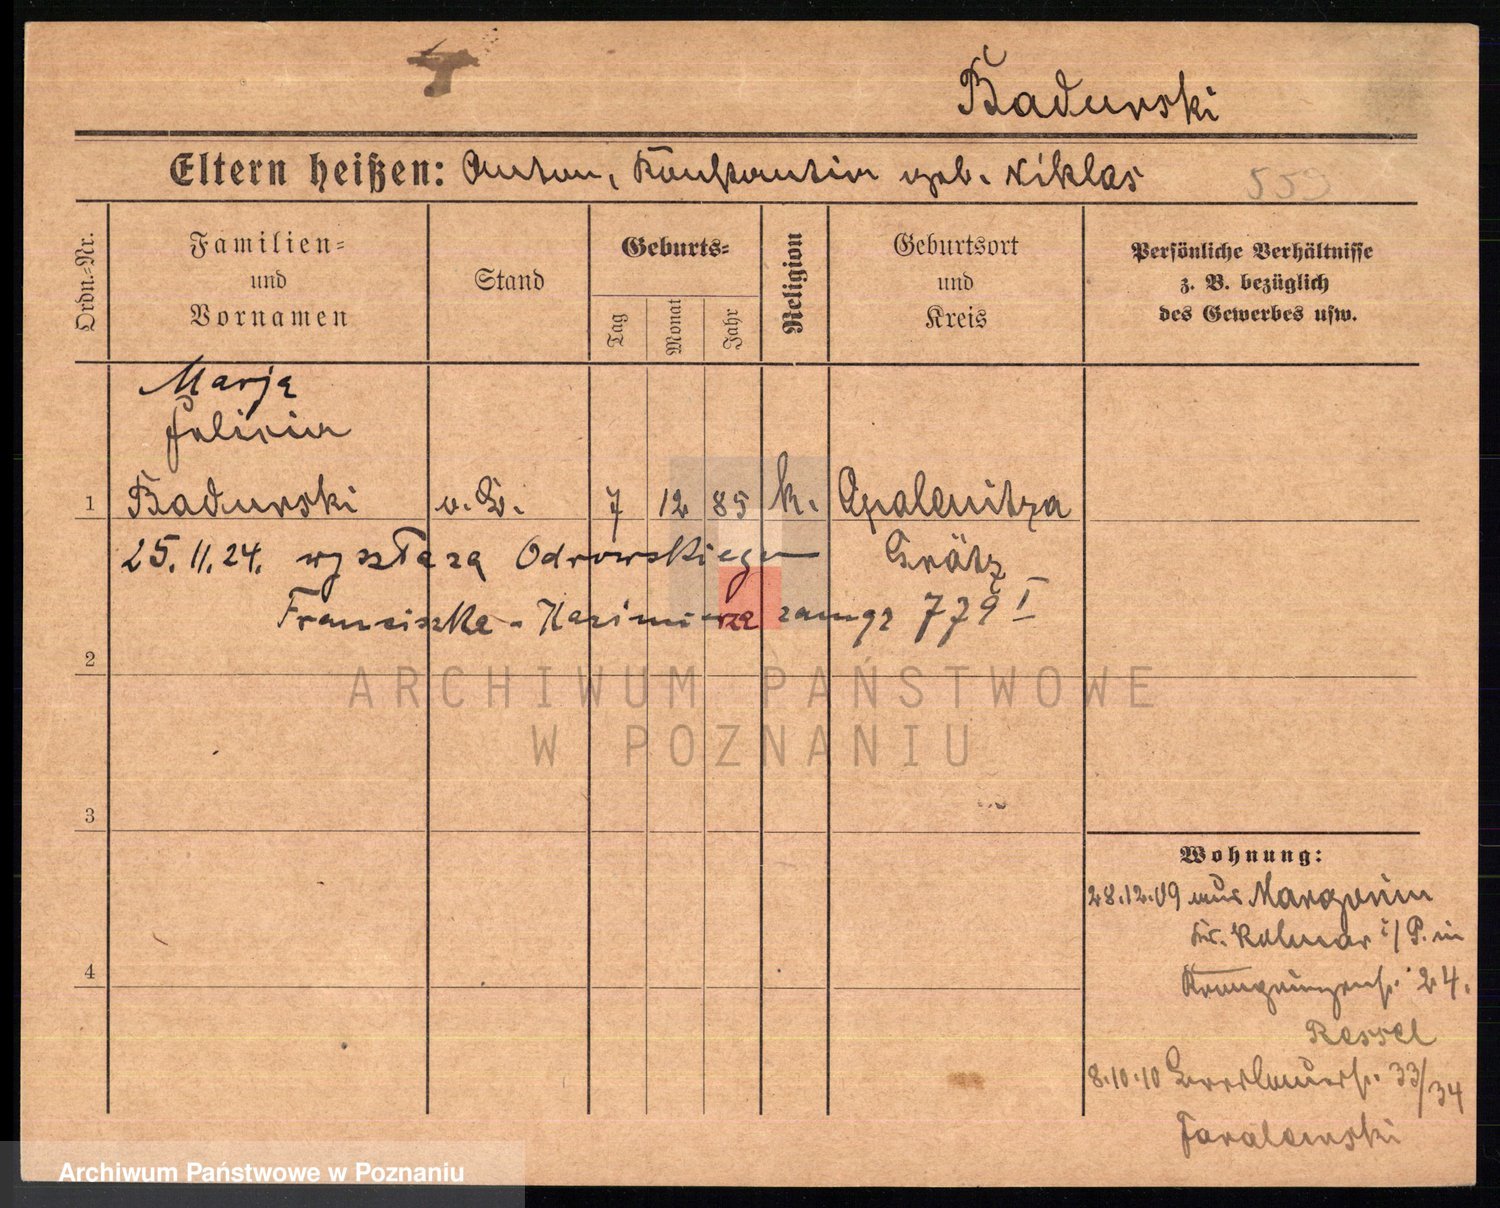 Badurski
Eltern heißen: Anton, Konstantia geb. Niklas
559
Ordn.-Nr.
Familien-
und
Vornamen
Stand
Geburts-
Tag
Monat
Jahr
Religion
Geburtsort
und
Kreis
Persönliche Verhältnisse
z. B. bezüglich
des Gewerbes usw.
Marja
Felicia
1 Badurski o. G. 7 12 85 k. Opalenitza
Grätz
25.11.24. wyszła za Odrowskiego
Franciszka-Kazimierza zamąż 779 I
2
ARCHIWUM PAŃSTWOWE
W POZNANIU
3
4
Wohnung:
28.12.09 aus Margonin
Kr. Kolmar i/P. in
Kronprinzenstr. 24.
Ressel
8.10.10 Breslauerstr. 33/34
Archiwum Państwowe w Poznaniu